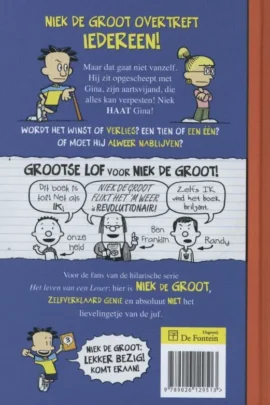 NIEK DE GROOT OVERTREFT
IEDEREEN!
Maar dat gaat niet vanzelf.
Hij zit opgescheept met
Gina, zijn aartsvijand, die
alles kan verpesten! Niek
HAAT Gina!
WORDT HET WINST OF VERLIES? EEN TIEN OF EEN ÉÉN?
OF MOET HIJ ALWEER NABLIJVEN?
GROOTSE LOF VOOR NIEK DE GROOT!
Dit boek is
tof! Net als
IK.
NIEK DE GROOT
FLIKT HET 'M WEER
REVOLUTIONAIR!
Zelfs IK
vind het boek
briljant.
onze
held
Ben
Franklin
Randy
Voor de fans van de hilarische serie
Het leven van een Loser: hier is NIEK DE GROOT,
ZELFVERKLAARD GENIE en absoluut NIET het
lievelingetje van de juf.
NIEK DE GROOT:
LEKKER BEZIG!
KOMT ERAAN!
Uitgeverij
De Fontein
9 789026 129513